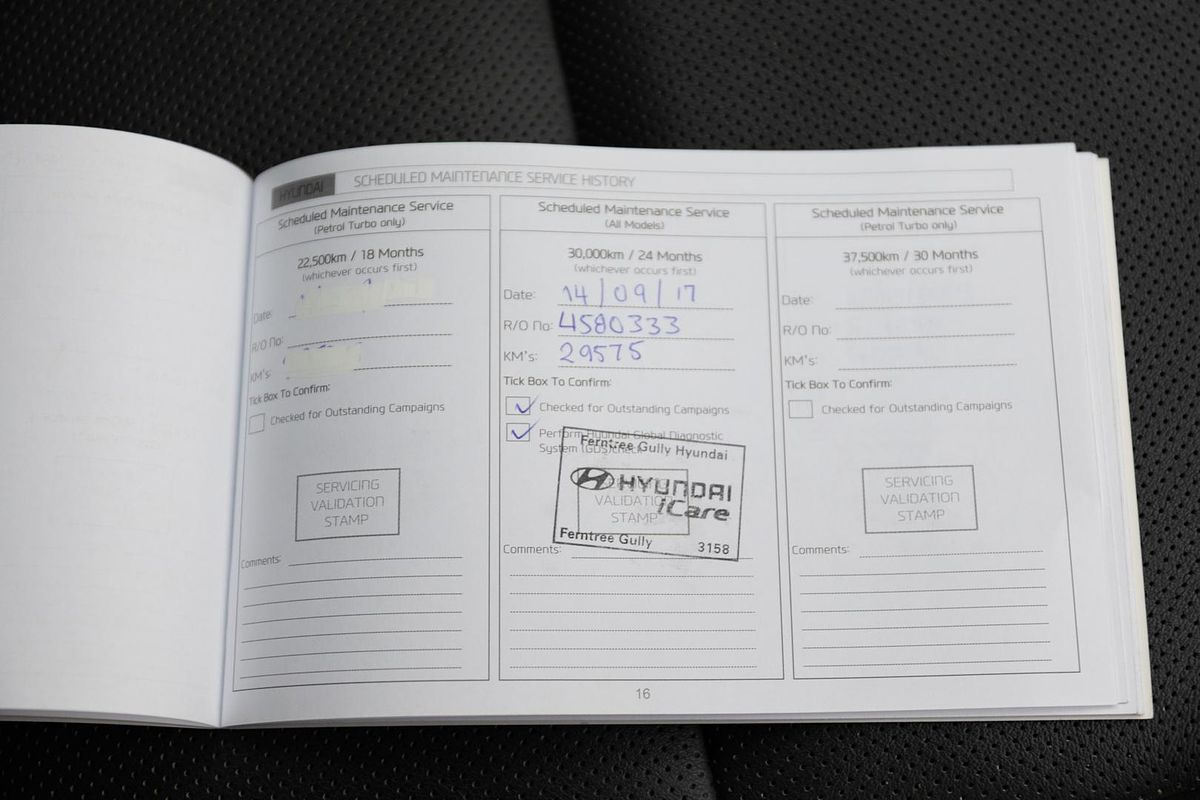 HYUNDAI SCHEDULED MAINTENANCE SERVICE HISTORY
Scheduled Maintenance Service
(Petrol Turbo only)
22,500km / 18 Months
(whichever occurs first)
Date:
R/O No:
KM's:
Tick Box To Confirm:
Checked for Outstanding Campaigns
SERVICING
VALIDATION
STAMP
Comments:
Scheduled Maintenance Service
(All Models)
30,000km / 24 Months
(whichever occurs first)
Date: 14/09/17
R/O No: 4580333
KM's: 29575
Tick Box To Confirm:
Checked for Outstanding Campaigns
Perform Hyundai Global Diagnostic
System (GDS) check
Ferntree Gully Hyundai
HYUNDAI
iCare
VALIDATION
STAMP
Ferntree Gully 3158
Comments:
Scheduled Maintenance Service
(Petrol Turbo only)
37,500km / 30 Months
(whichever occurs first)
Date:
R/O No:
KM's:
Tick Box To Confirm:
Checked for Outstanding Campaigns
SERVICING
VALIDATION
STAMP
Comments:
16